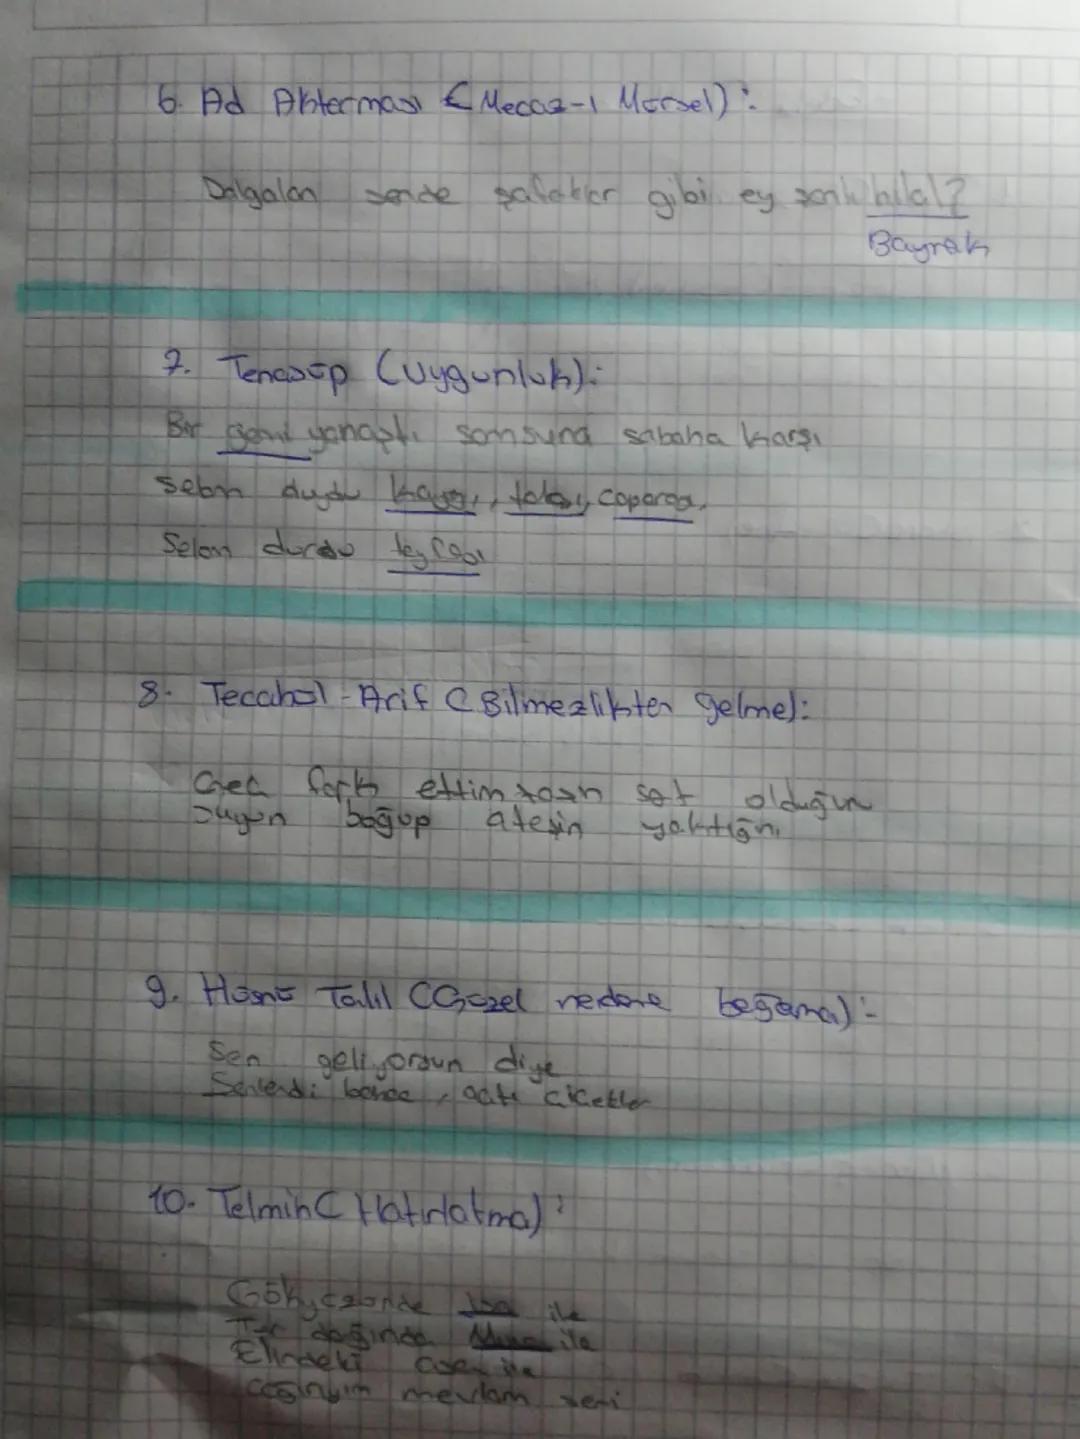 6. Ad Aktarması (Mecaz-ı Mürsel):
Dalgalan sende şafaklar gibi ey şanlı hilal?
Bayrak
7. Tenasüp (Uygunluk):
Bir gemi yanaştı samsuna sabaha karşı
Selam durdu kayığı, çaparası,
Selam durdu tayfası
8. Tecahül-Arif (Bilmezlikten gelme):
Geç fark ettim taşın sert olduğun
Suyun boğup ateşin yaktığını
9. Hüsnü Talil (Güzel nedene bağlama):
Sen geliyorsun diye
Süslendi bahçe, açtı çiçekler
10. Telmih (Hatırlatma):
Gökyüzünde İsa ile
Tur dağında Musa ile
Elindeki asa ile
Çağırayım mevlam seni